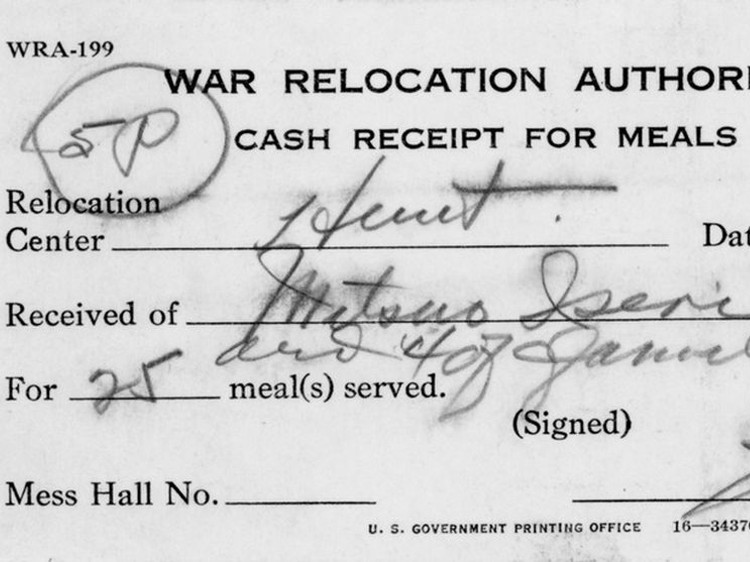 WRA-199
WAR RELOCATION AUTHORI
5P
CASH RECEIPT FOR MEALS
Relocation
Center Hunt. Dat
Received of Mitsuo Iseri
and 4 of Famil
For 25 meal(s) served.
(Signed)
Mess Hall No.
U. S. GOVERNMENT PRINTING OFFICE 16—3437